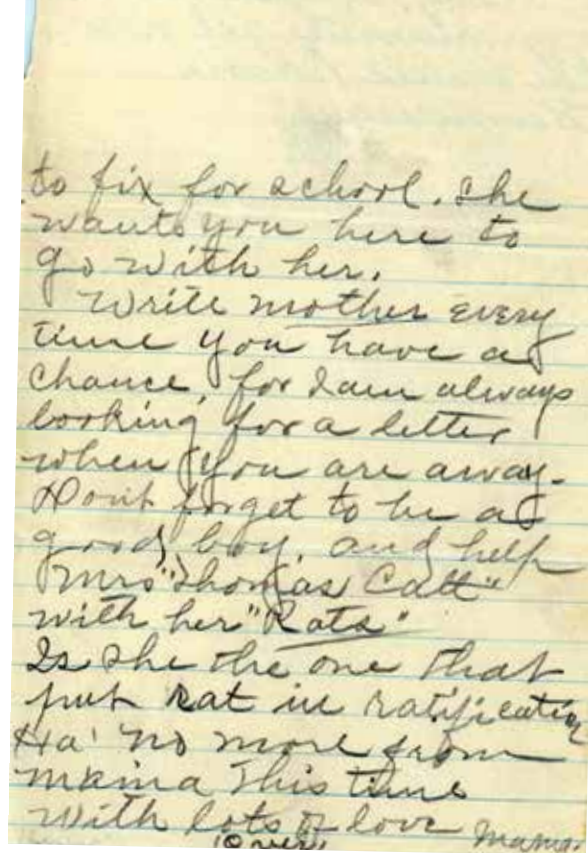 to fix for school. She
wants you here to
go with her.
Write mother every
time you have a
chance, for I am always
looking for a letter
when you are away.
Dont forget to be a
good boy. and help
Mrs "Thomas Catt"
with her "Rats"
Is she the one that
put rat in ratification
Ha! No more from
mama this time
With lots of love Mama.
(Over)